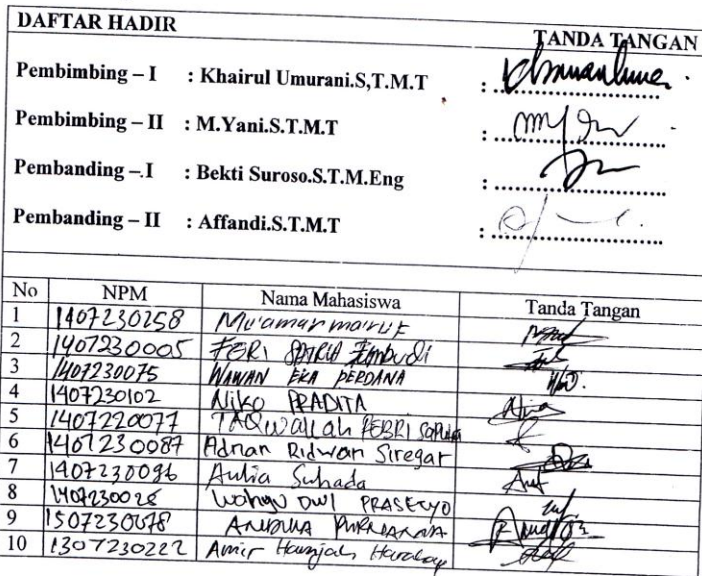 DAFTAR HADIR TANDA TANGAN
Pembimbing – I : Khairul Umurani.S,T.M.T : ..............................
Pembimbing – II : M.Yani.S.T.M.T : ..............................
Pembanding – I : Bekti Suroso.S.T.M.Eng : ..............................
Pembanding – II : Affandi.S.T.M.T : ..............................
No NPM Nama Mahasiswa Tanda Tangan
1 1407230258 Mu'amar maruf
2 1407230005 FERI SATRIA
3 1407230075 WAWAN EKA PERDANA
4 1407230102 NIKO PRADITA
5 1407220077 TAQwallah FEBRI saputra
6 1407230087 Adnan Ridwan Siregar
7 1407230096 Aulia Suhada
8 1407230028 Wahyu DWI PRASETYO
9 1507230078
10 1307230222 Amir Hamjah Harahap